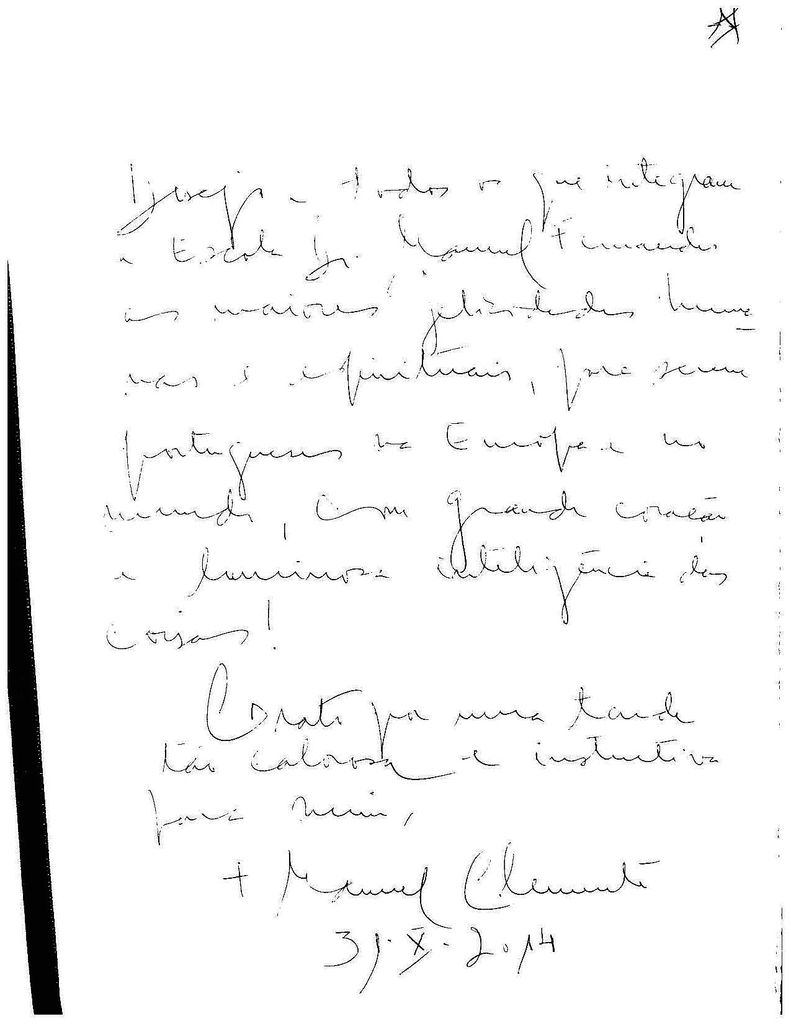 Desejo a todos os que integram
a Escola Dr. Manuel Fernandes
as maiores felicidades huma
nas e espirituais, para serem
portugueses na Europa e no
mundo, com grande coração
e luminosa inteligência das
coisas!
Grato por uma tarde
tão calorosa e instrutiva
para mim,
+ Manuel Clemente
31.X.2014